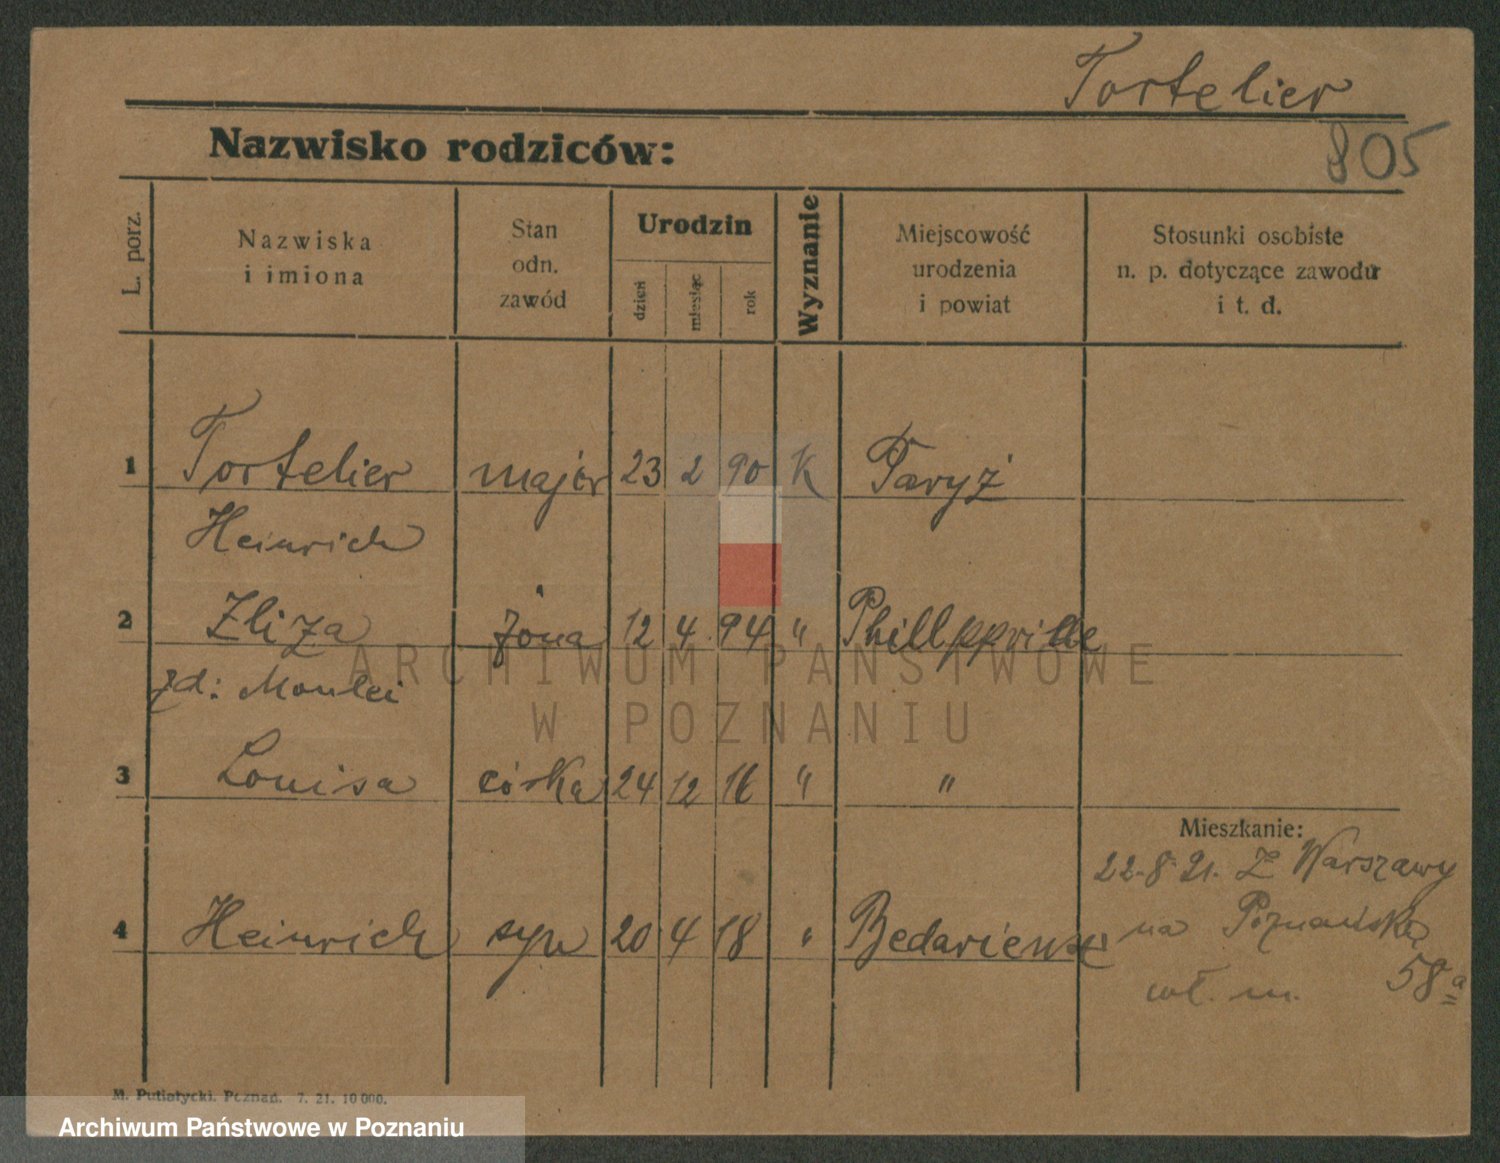 Tortelier
805
Nazwisko rodziców:
L. porz.
Nazwiska
i imiona
Stan
odn.
zawód
Urodzin
dzień
miesiąc
rok
Wyznanie
Miejscowość
urodzenia
i powiat
Stosunki osobiste
n. p. dotyczące zawodu
i t. d.
1 Tortelier major 23 2 90 K Paryż
Heinrich
2 Eliza żona 12 4 94 " Phillppville
zd:
3 Louisa córka 24 12 16 " "
Mieszkanie:
22.8.21. Z Warszawy
4 Heinrich syn 20 4 18 "
na Poznańską
58a
wł. m.
M. Putiatycki. Poznań. 7. 21. 10 000.
ARCHIWUM PAŃSTWOWE
W POZNANIU
Archiwum Państwowe w Poznaniu